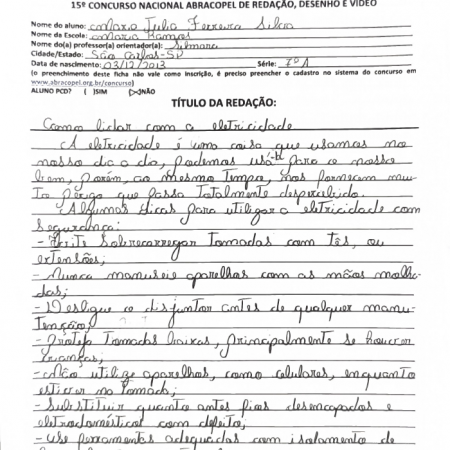 15º CONCURSO NACIONAL ABRACOPEL DE REDAÇÃO, DESENHO E VÍDEO
Nome do aluno: Maria Julia Ferreira Silva
Nome da Escola: Maria Ramos
Nome do(a) professor(a) orientador(a): Silmara
Cidade/Estado: São Carlos-SP
Data de nascimento: 03/12/2013 Série: 7º A
(o preenchimento deste ficha não vale como inscrição, é preciso preencher o cadastro no sistema do concurso em
www.abracopel.org.br/concurso)
ALUNO PCD? ( )SIM (X)NÃO
TÍTULO DA REDAÇÃO:
Como lidar com a eletricidade
A eletricidade é uma coisa que usamos no
nosso dia a dia, podemos usá-la para o nosso
bem, porém, ao mesmo tempo, nos fornecem mui-
to perigo que passa totalmente despercebido.
Algumas dicas para utilizar a eletricidade com
segurança:
- Evite sobrecarregar tomadas com tês, ou
extensões;
- Nunca manuseie aparelhos com as mãos molha-
das;
- Desligue o disjuntor antes de qualquer manu-
tenção;
- Proteja tomadas baixas, principalmente se houver
crianças;
- Não utilize aparelhos, como celulares, enquanto
estiver na tomada;
- Substituir quanto antes fios desencapados e
eletrodomésticos com defeito;
- Use ferramentas adequadas com isolamento de